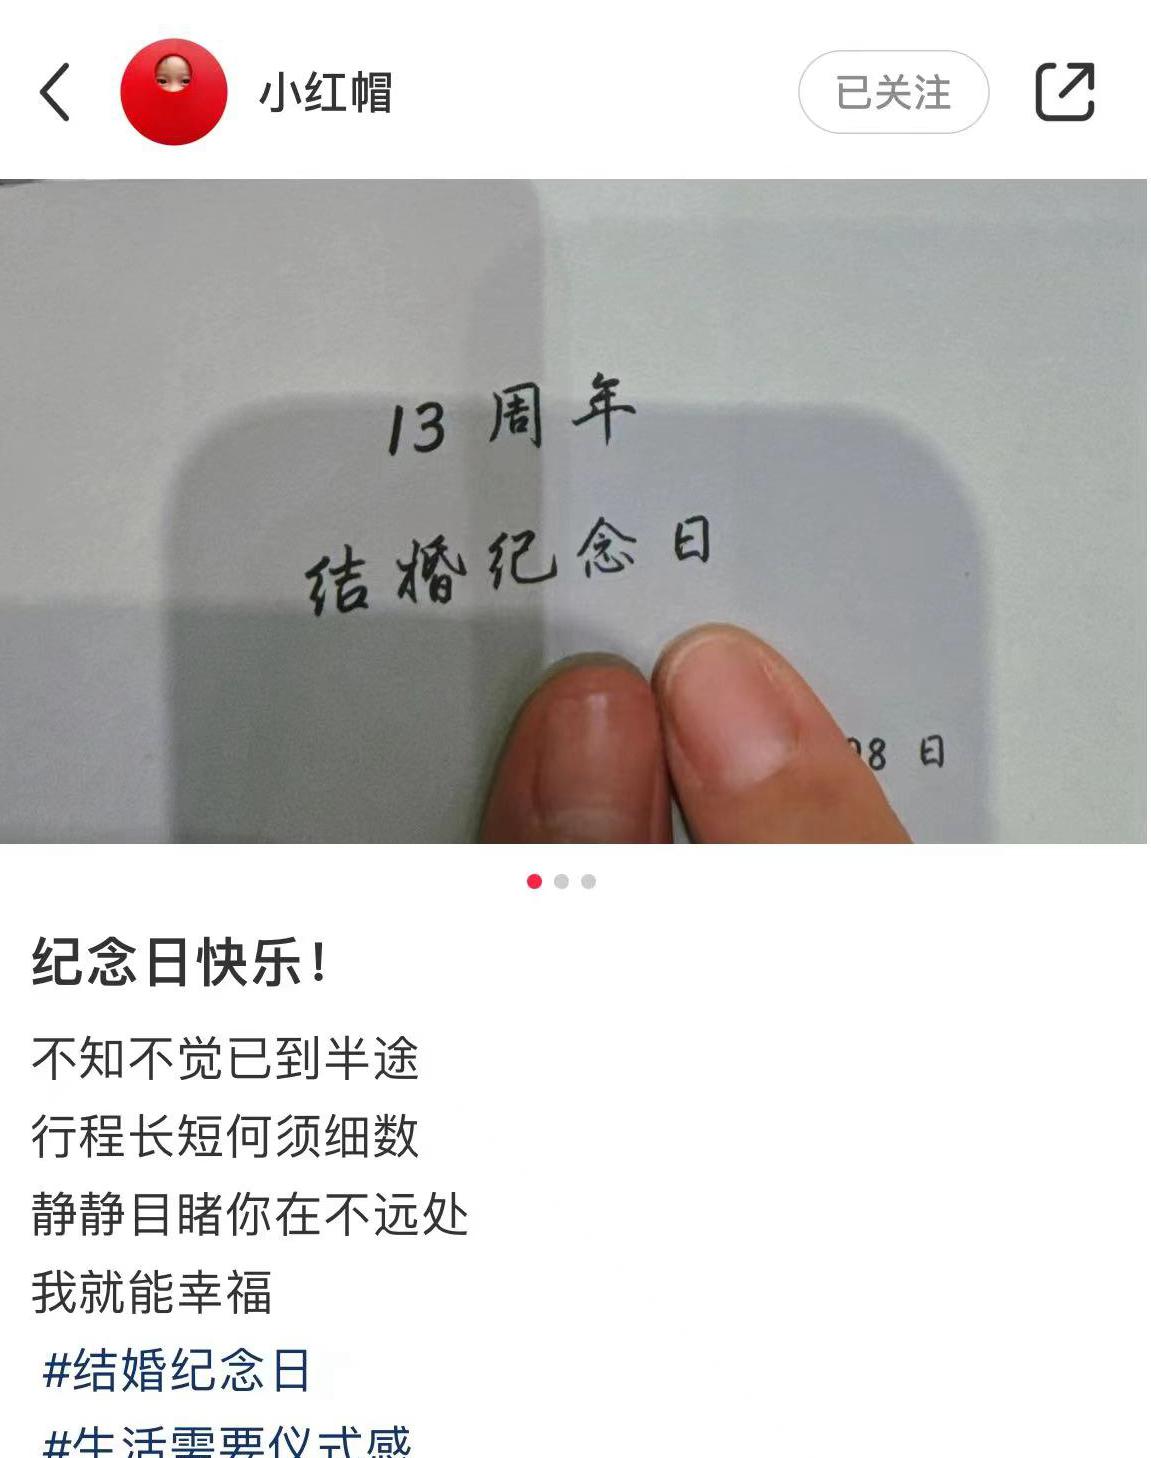 小红帽
已关注
13 周年
结婚纪念日
8 日
纪念日快乐！
不知不觉已到半途
行程长短何须细数
静静目睹你在不远处
我就能幸福
#结婚纪念日
#生活需要仪式感